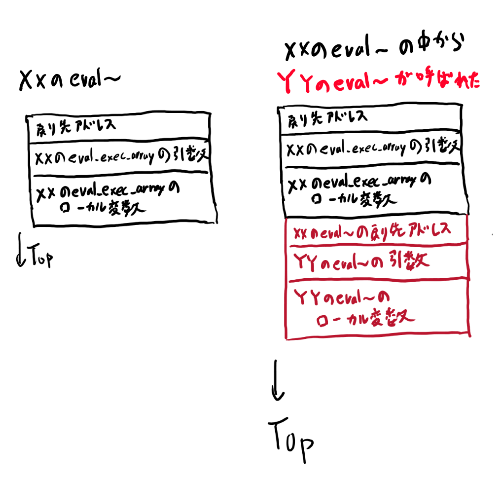 XXのeval~
戻り先アドレス
XXのeval_exec_arrayの引数
XXのeval_exec_arrayの
ローカル変数
↓Top
XXのeval~の中から
YYのeval~が呼ばれた
戻り先アドレス
XXのeval_exec_arrayの引数
XXのeval_exec_arrayの
ローカル変数
XXのeval~の戻り先アドレス
YYのeval~の引数
YYのeval~の
ローカル変数
↓
Top